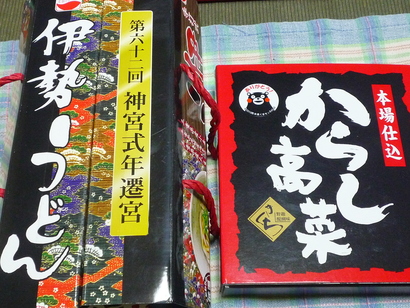 伊勢うどん
第六十二回 神宮式年遷宮
本場仕込
からし
高菜